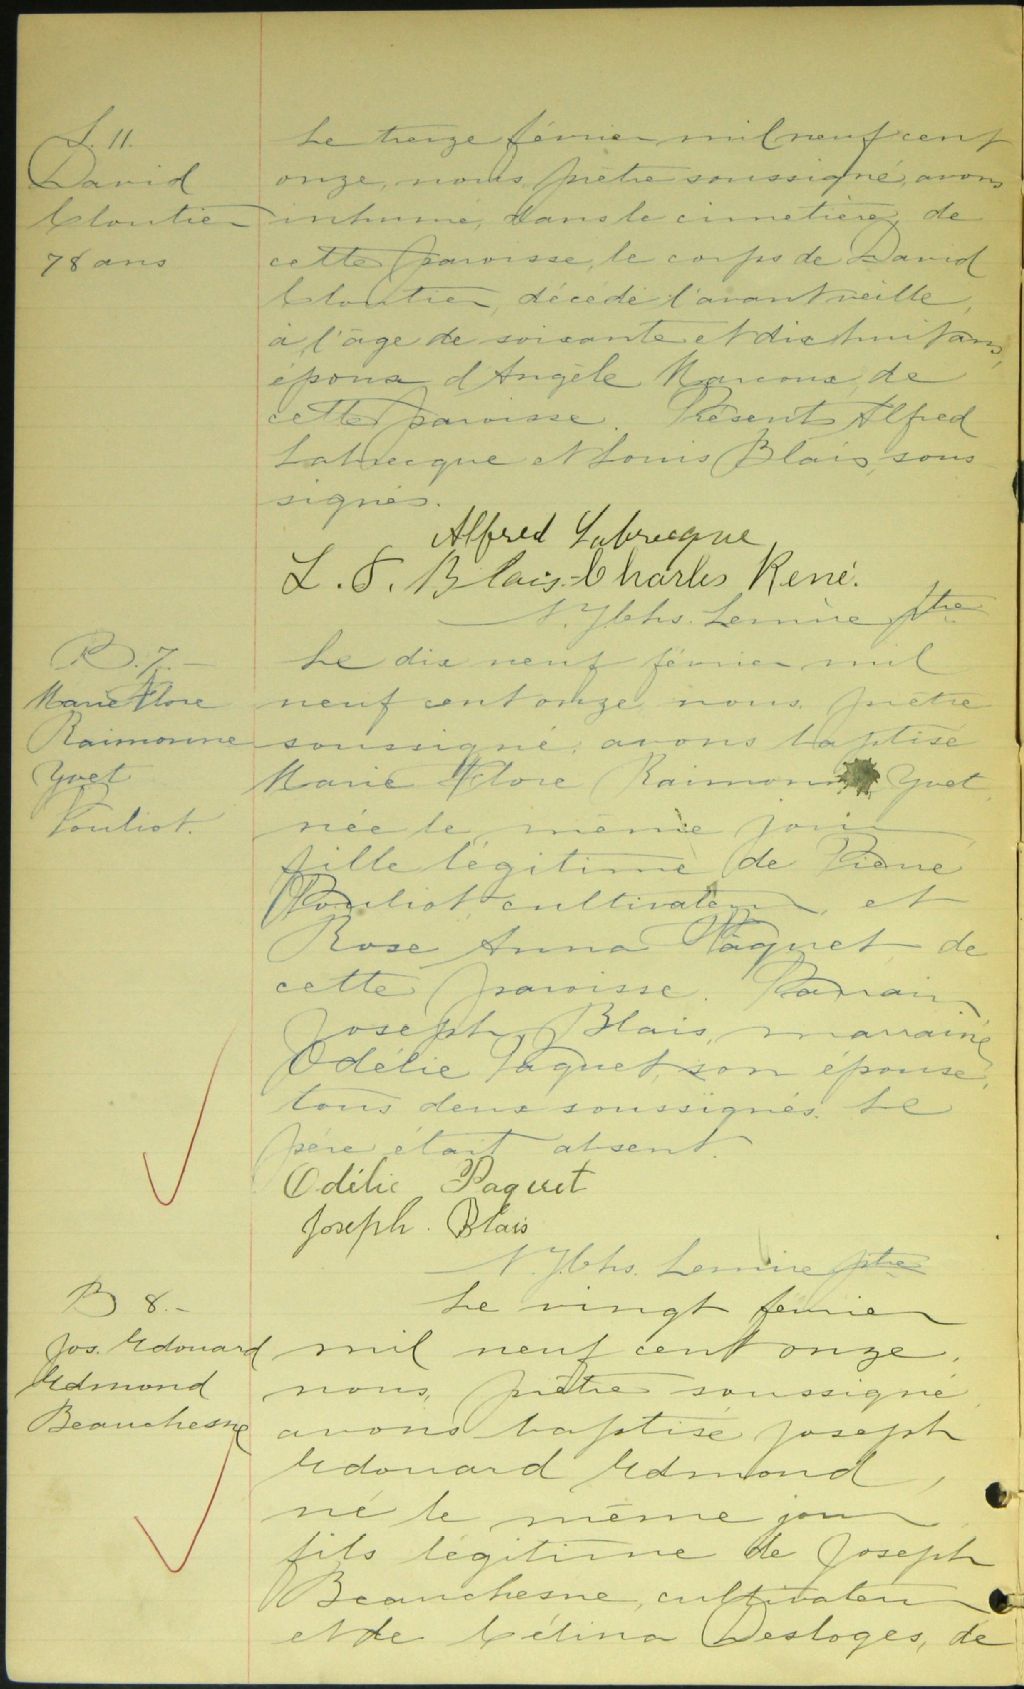 S. 11.
David
Cloutier
78 ans
Le treize février mil neuf cent
onze, nous, prêtre soussigné, avons
inhumé, dans le cimetière de
cette paroisse, le corps de David
Cloutier, décédé l'avant veille,
à l'âge de soixante et dix huit ans,
époux d'Angèle Marcoux, de
cette paroisse. Présents Alfred
Labrecque et Louis Blais, sous-
signés.
Alfred Labrecque
L. S. Blais - Charles René.
Lemire ptre
B. 7. -
Marie Flore
Raimonne
Yvet
Pouliot.
Le dix neuf février mil
neuf cent onze, nous, prêtre
soussigné, avons baptisé
Marie Flore Raimonne Yvet,
née le même jour
fille légitime de Pierre
Pouliot, cultivateur, et
Rose Anna Pâquet de
cette paroisse. Parrain
Joseph Blais, marraine
Odélie Paquet, son épouse,
tous deux soussignés. Le
père était absent.
Odélie Paquet
Joseph. Blais
Lemire ptre
B 8. -
Jos. Edouard
Edmond
Beauchesne
Le vingt février
mil neuf cent onze,
nous, prêtre soussigné,
avons baptisé Joseph
Edouard Edmond,
né le même jour
fils légitime de Joseph
Beauchesne, cultivateur
et de Célina Desloges, de